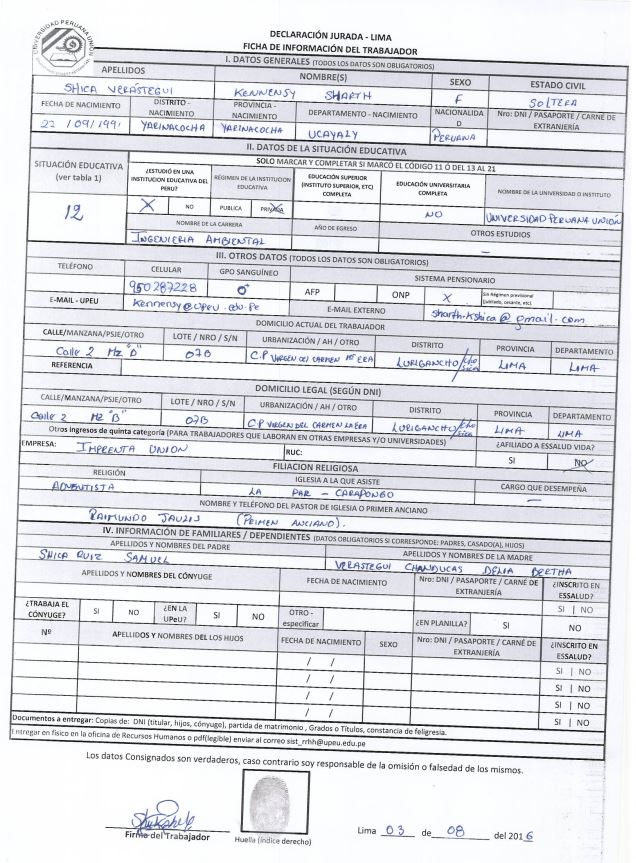 UNIVERSIDAD PERUANA UNIÓN
DECLARACIÓN JURADA - LIMA
FICHA DE INFORMACIÓN DEL TRABAJADOR
I. DATOS GENERALES (TODOS LOS DATOS SON OBLIGATORIOS)
APELLIDOS NOMBRE(S) SEXO ESTADO CIVIL
SHICA VERÁSTEGUI KENNENSY SHARTH F SOLTERA
FECHA DE NACIMIENTO DISTRITO - NACIMIENTO PROVINCIA - NACIMIENTO DEPARTAMENTO - NACIMIENTO NACIONALIDAD Nro: DNI / PASAPORTE / CARNÉ DE EXTRANJERÍA
22 /09/1991 YARINACOCHA YARINACOCHA UCAYALY PERUANA
II. DATOS DE LA SITUACIÓN EDUCATIVA
SITUACIÓN EDUCATIVA (ver tabla 1) SOLO MARCAR Y COMPLETAR SI MARCÓ EL CÓDIGO 11 Ó DEL 13 AL 21
¿ESTUDIÓ EN UNA INSTITUCION EDUCATIVA DEL PERU? RÉGIMEN DE LA INSTITUCION EDUCATIVA EDUCACIÓN SUPERIOR (INSTITUTO SUPERIOR, ETC) COMPLETA EDUCACIÓN UNIVERSITARIA COMPLETA NOMBRE DE LA UNIVERSIDAD O INSTITUTO
12 X NO PUBLICA PRIVADA X NO UNIVERSIDAD PERUANA UNIÓN
NOMBRE DE LA CARRERA AÑO DE EGRESO OTROS ESTUDIOS
INGENIERIA AMBIENTAL
III. OTROS DATOS (TODOS LOS DATOS SON OBLIGATORIOS)
TELÉFONO CELULAR GPO SANGUÍNEO SISTEMA PENSIONARIO
950287228 AFP ONP X Sin Régimen previsional (jubilado, cesante, etc).
E-MAIL - UPEU kennensy@upeu.edu.pe E-MAIL EXTERNO sharth.kshica@gmail.com
DOMICILIO ACTUAL DEL TRABAJADOR
CALLE/MANZANA/PSJE/OTRO LOTE / NRO / S/N URBANIZACIÓN / AH / OTRO DISTRITO PROVINCIA DEPARTAMENTO
Calle 2 Mz "D" 07B C.P VIRGEN DEL CARMEN LURIGANCHO/chosica LIMA LIMA
REFERENCIA
DOMICILIO LEGAL (SEGÚN DNI)
CALLE/MANZANA/PSJE/OTRO LOTE / NRO / S/N URBANIZACIÓN / AH / OTRO DISTRITO PROVINCIA DEPARTAMENTO
Calle 2 Mz "B" 07B C.P VIRGEN DEL CARMEN LA ERA LURIGANCHO/chosica LIMA LIMA
Otros ingresos de quinta categoría (PARA TRABAJADORES QUE LABORAN EN OTRAS EMPRESAS Y/O UNIVERSIDADES) ¿AFILIADO A ESSALUD VIDA?
EMPRESA: IMPRENTA UNION RUC: SI NO X
FILIACION RELIGIOSA
RELIGIÓN IGLESIA A LA QUE ASISTE CARGO QUE DESEMPEÑA
ADVENTISTA LA PAR - CARAPONGO —
NOMBRE Y TELÉFONO DEL PASTOR DE IGLESIA O PRIMER ANCIANO
RAIMUNDO JAULIS (PRIMER ANCIANO).
IV. INFORMACIÓN DE FAMILIARES / DEPENDIENTES (DATOS OBLIGATORIOS SI CORRESPONDE: PADRES, CASADO(A), HIJOS)
APELLIDOS Y NOMBRES DEL PADRE APELLIDOS Y NOMBRES DE LA MADRE
SHICA RUIZ SAMUEL VERASTEGUI CHANDUCAS DELIA BERTHA
APELLIDOS Y NOMBRES DEL CÓNYUGE FECHA DE NACIMIENTO Nro: DNI / PASAPORTE / CARNÉ DE EXTRANJERÍA ¿INSCRITO EN ESSALUD?
SI | NO
¿TRABAJA EL CÓNYUGE? SI NO ¿EN LA UPeU? SI NO OTRO - especificar ¿EN PLANILLA? SI NO
Nº APELLIDOS Y NOMBRES DEL LOS HIJOS FECHA DE NACIMIENTO SEXO Nro: DNI / PASAPORTE / CARNÉ DE EXTRANJERÍA ¿INSCRITO EN ESSALUD?
/ / SI | NO
/ / SI | NO
/ / SI | NO
/ / SI | NO
/ / SI | NO
Documentos a entregar: Copias de: DNI (titular, hijos, cónyuge), partida de matrimonio , Grados o Títulos, constancia de feligresia.
Entregar en físico en la oficina de Recursos Humanos o pdf(legible) enviar al correo sist_rrhh@upeu.edu.pe
Los datos Consignados son verdaderos, caso contrario soy responsable de la omisión o falsedad de los mismos.
Firma del Trabajador Huella (índice derecho) Lima 03 de 08 del 2016